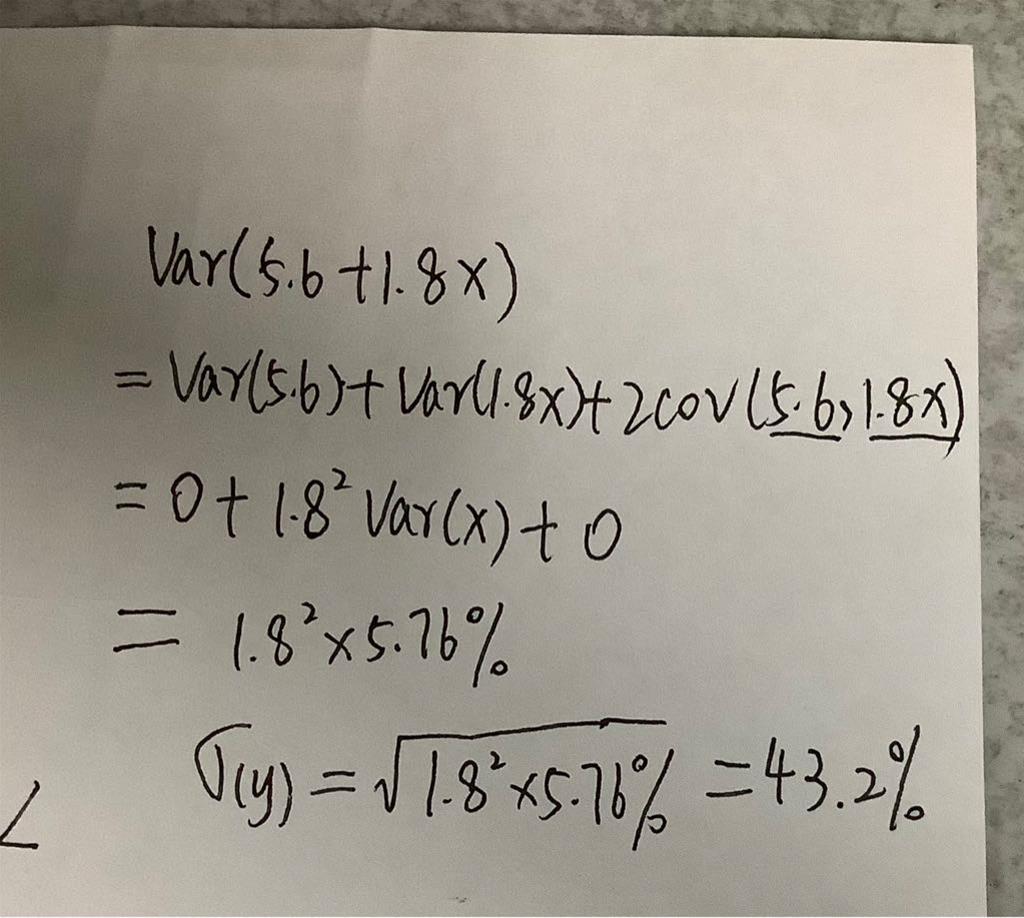 Var(5.6+1.8x)
=Var(5.6)+Var(1.8x)+2cov(5.6,1.8x)
=0+1.8²Var(x)+0
=1.8²×5.76%
σ(y)=√1.8²×5.76%=43.2%